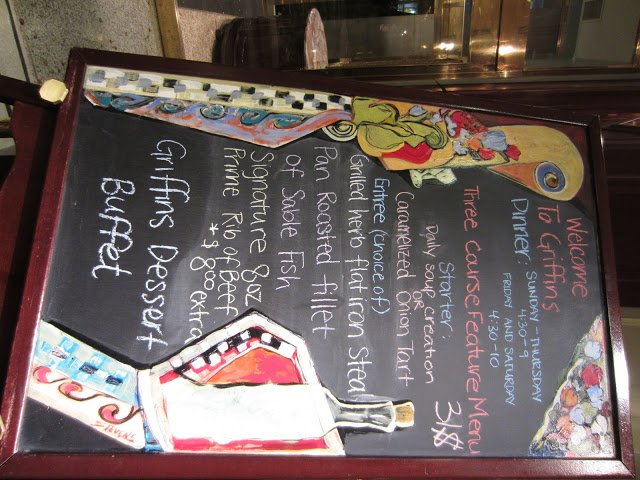 Welcome
To Griffins
Dinner: SUNDAY - THURSDAY
4:30-9
FRIDAY AND SATURDAY
4:30-10
Three Course Feature Menu
Starter: 31$
Daily soup creation
OR
Caramelized Onion Tart
Entree (choice of)
Grilled herb flat iron Steak
Pan Roasted fillet
of Sable Fish
Signature 8oz
Prime Rib of Beef
* $8.00 extra
Griffins Dessert
Buffet